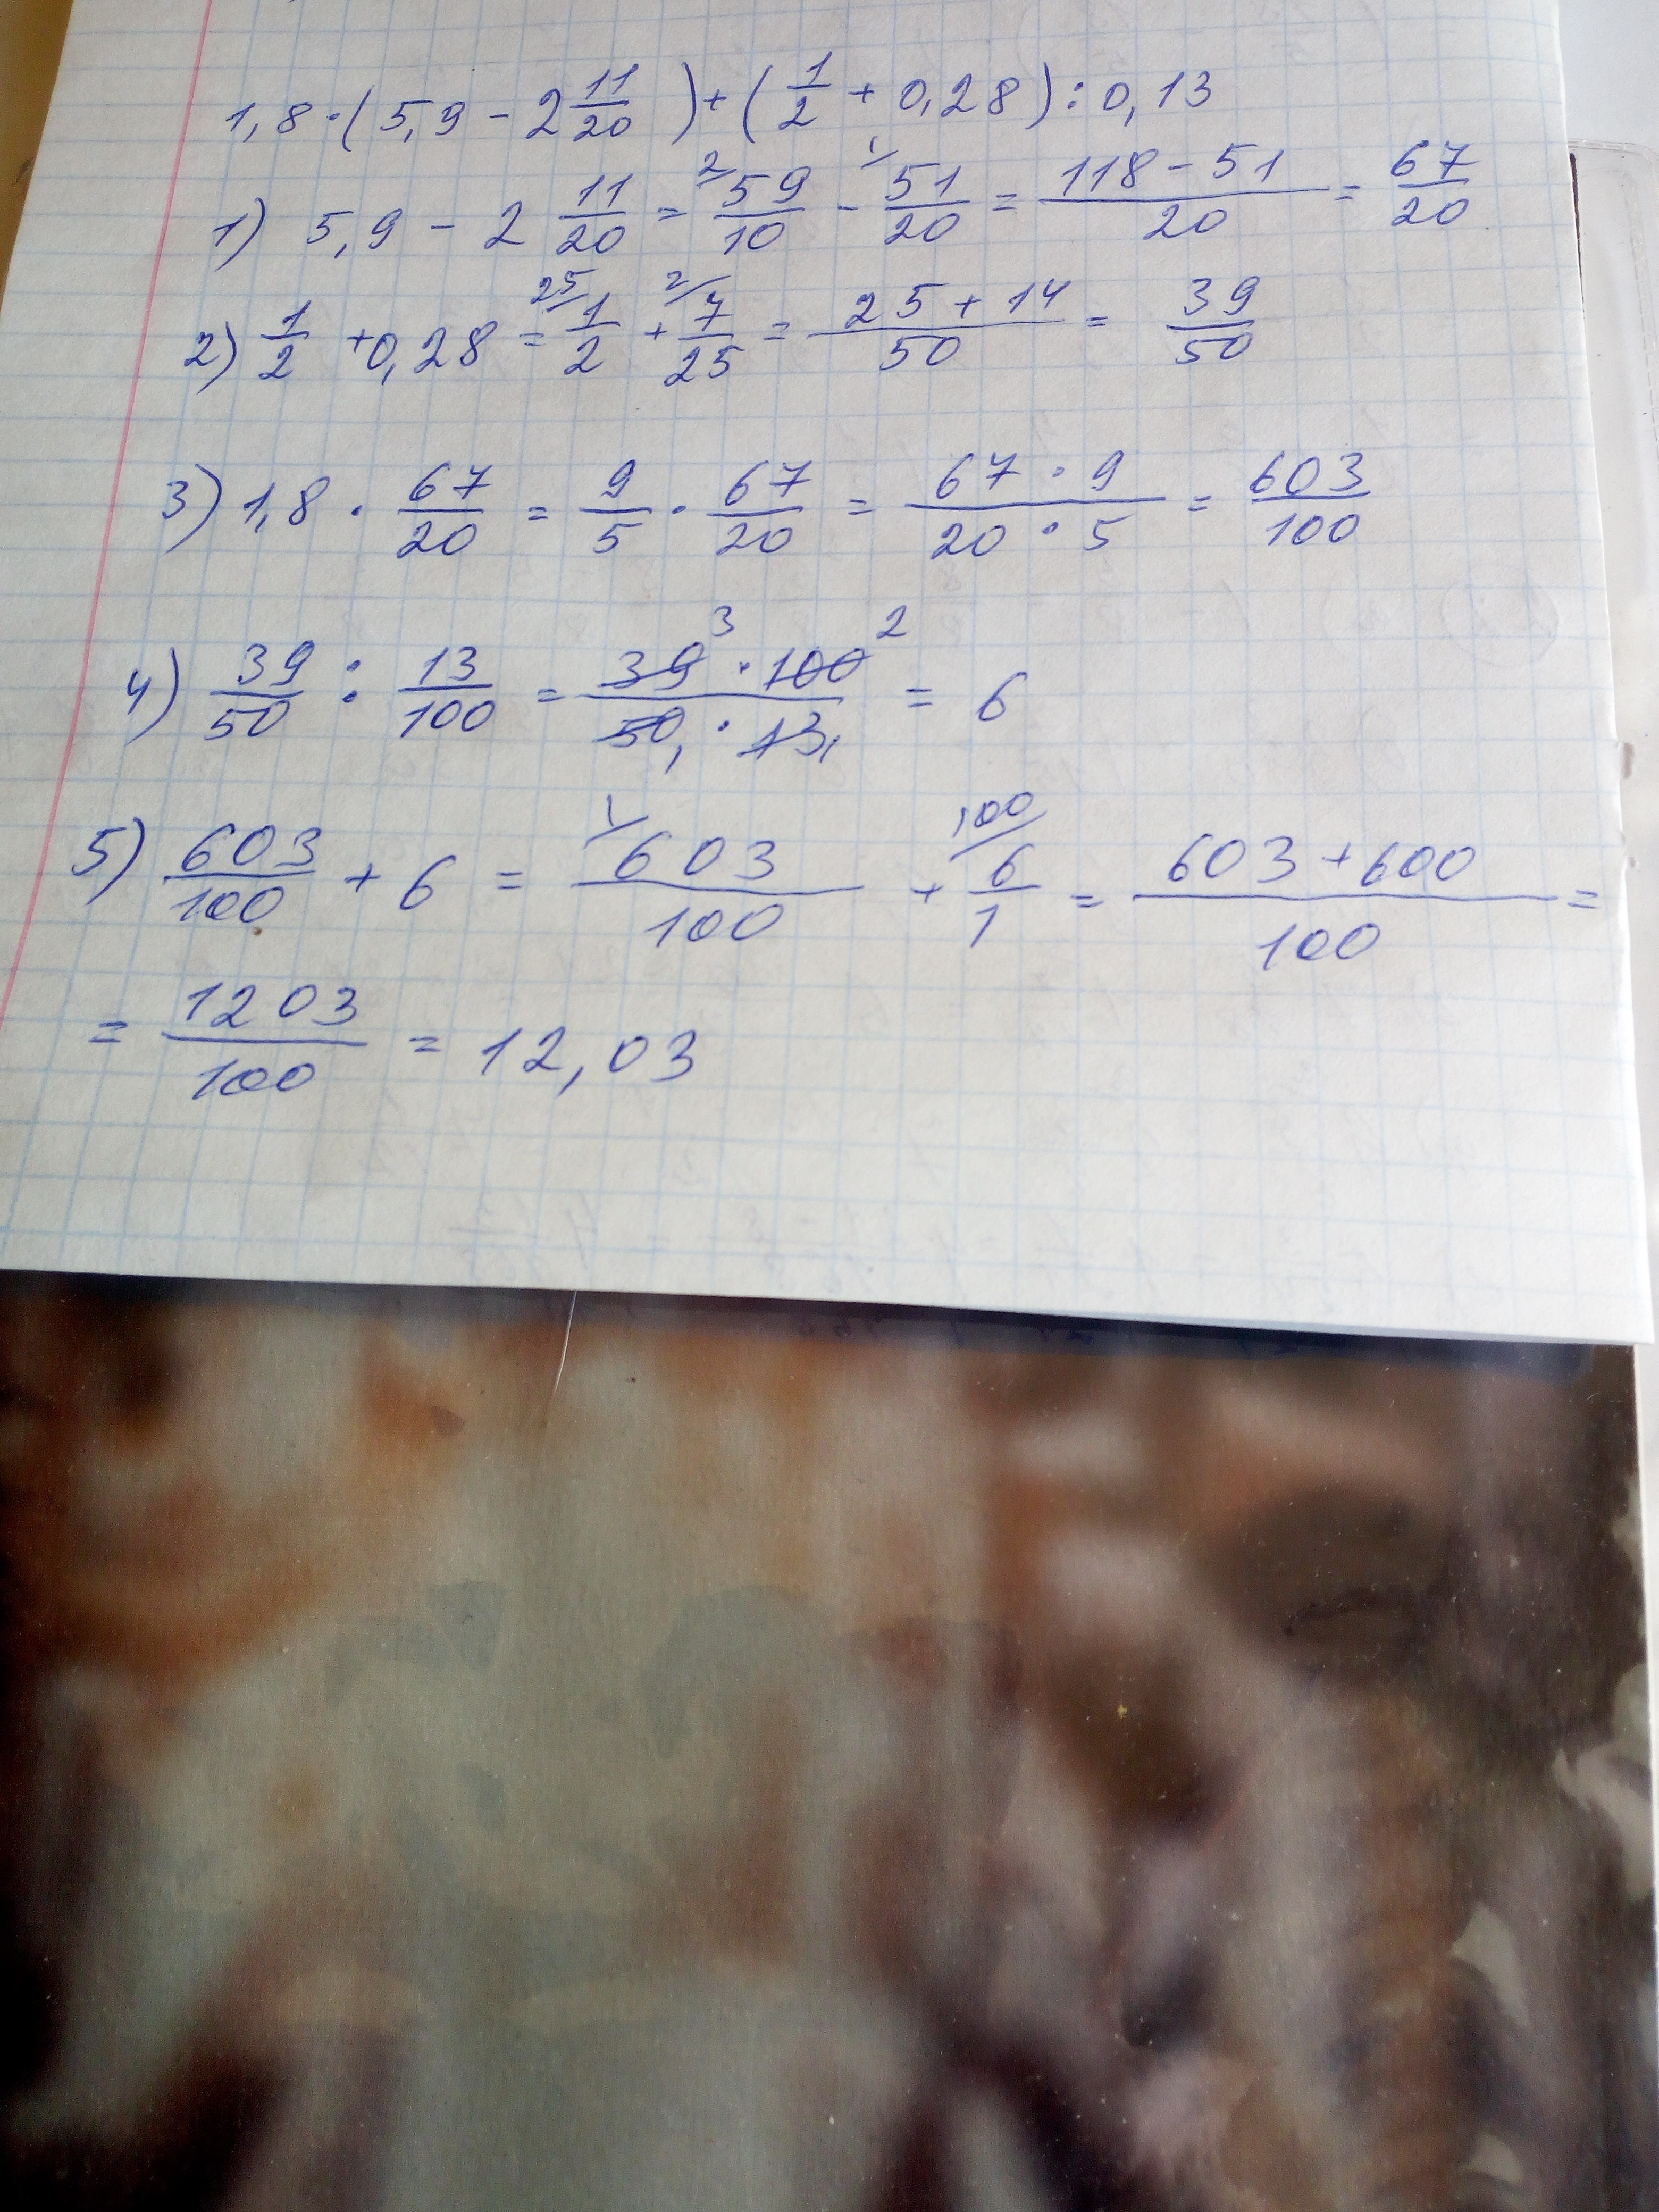 1,8 · (5,9 - 2 11/20) + (1/2 + 0,28) : 0,13
1) 5,9 - 2 11/20 = 2/ 59/10 - 1/ 51/20 = (118 - 51)/20 = 67/20
2) 1/2 + 0,28 = 25/ 1/2 + 2/ 7/25 = (25 + 14)/50 = 39/50
3) 1,8 · 67/20 = 9/5 · 67/20 = (67 · 9)/(20 · 5) = 603/100
4) 39/50 : 13/100 = (39 3 · 100 2)/(50 1 · 13 1) = 6
5) 603/100 + 6 = 1/ 603/100 + 100/ 6/1 = (603 + 600)/100 =
= 1203/100 = 12,03